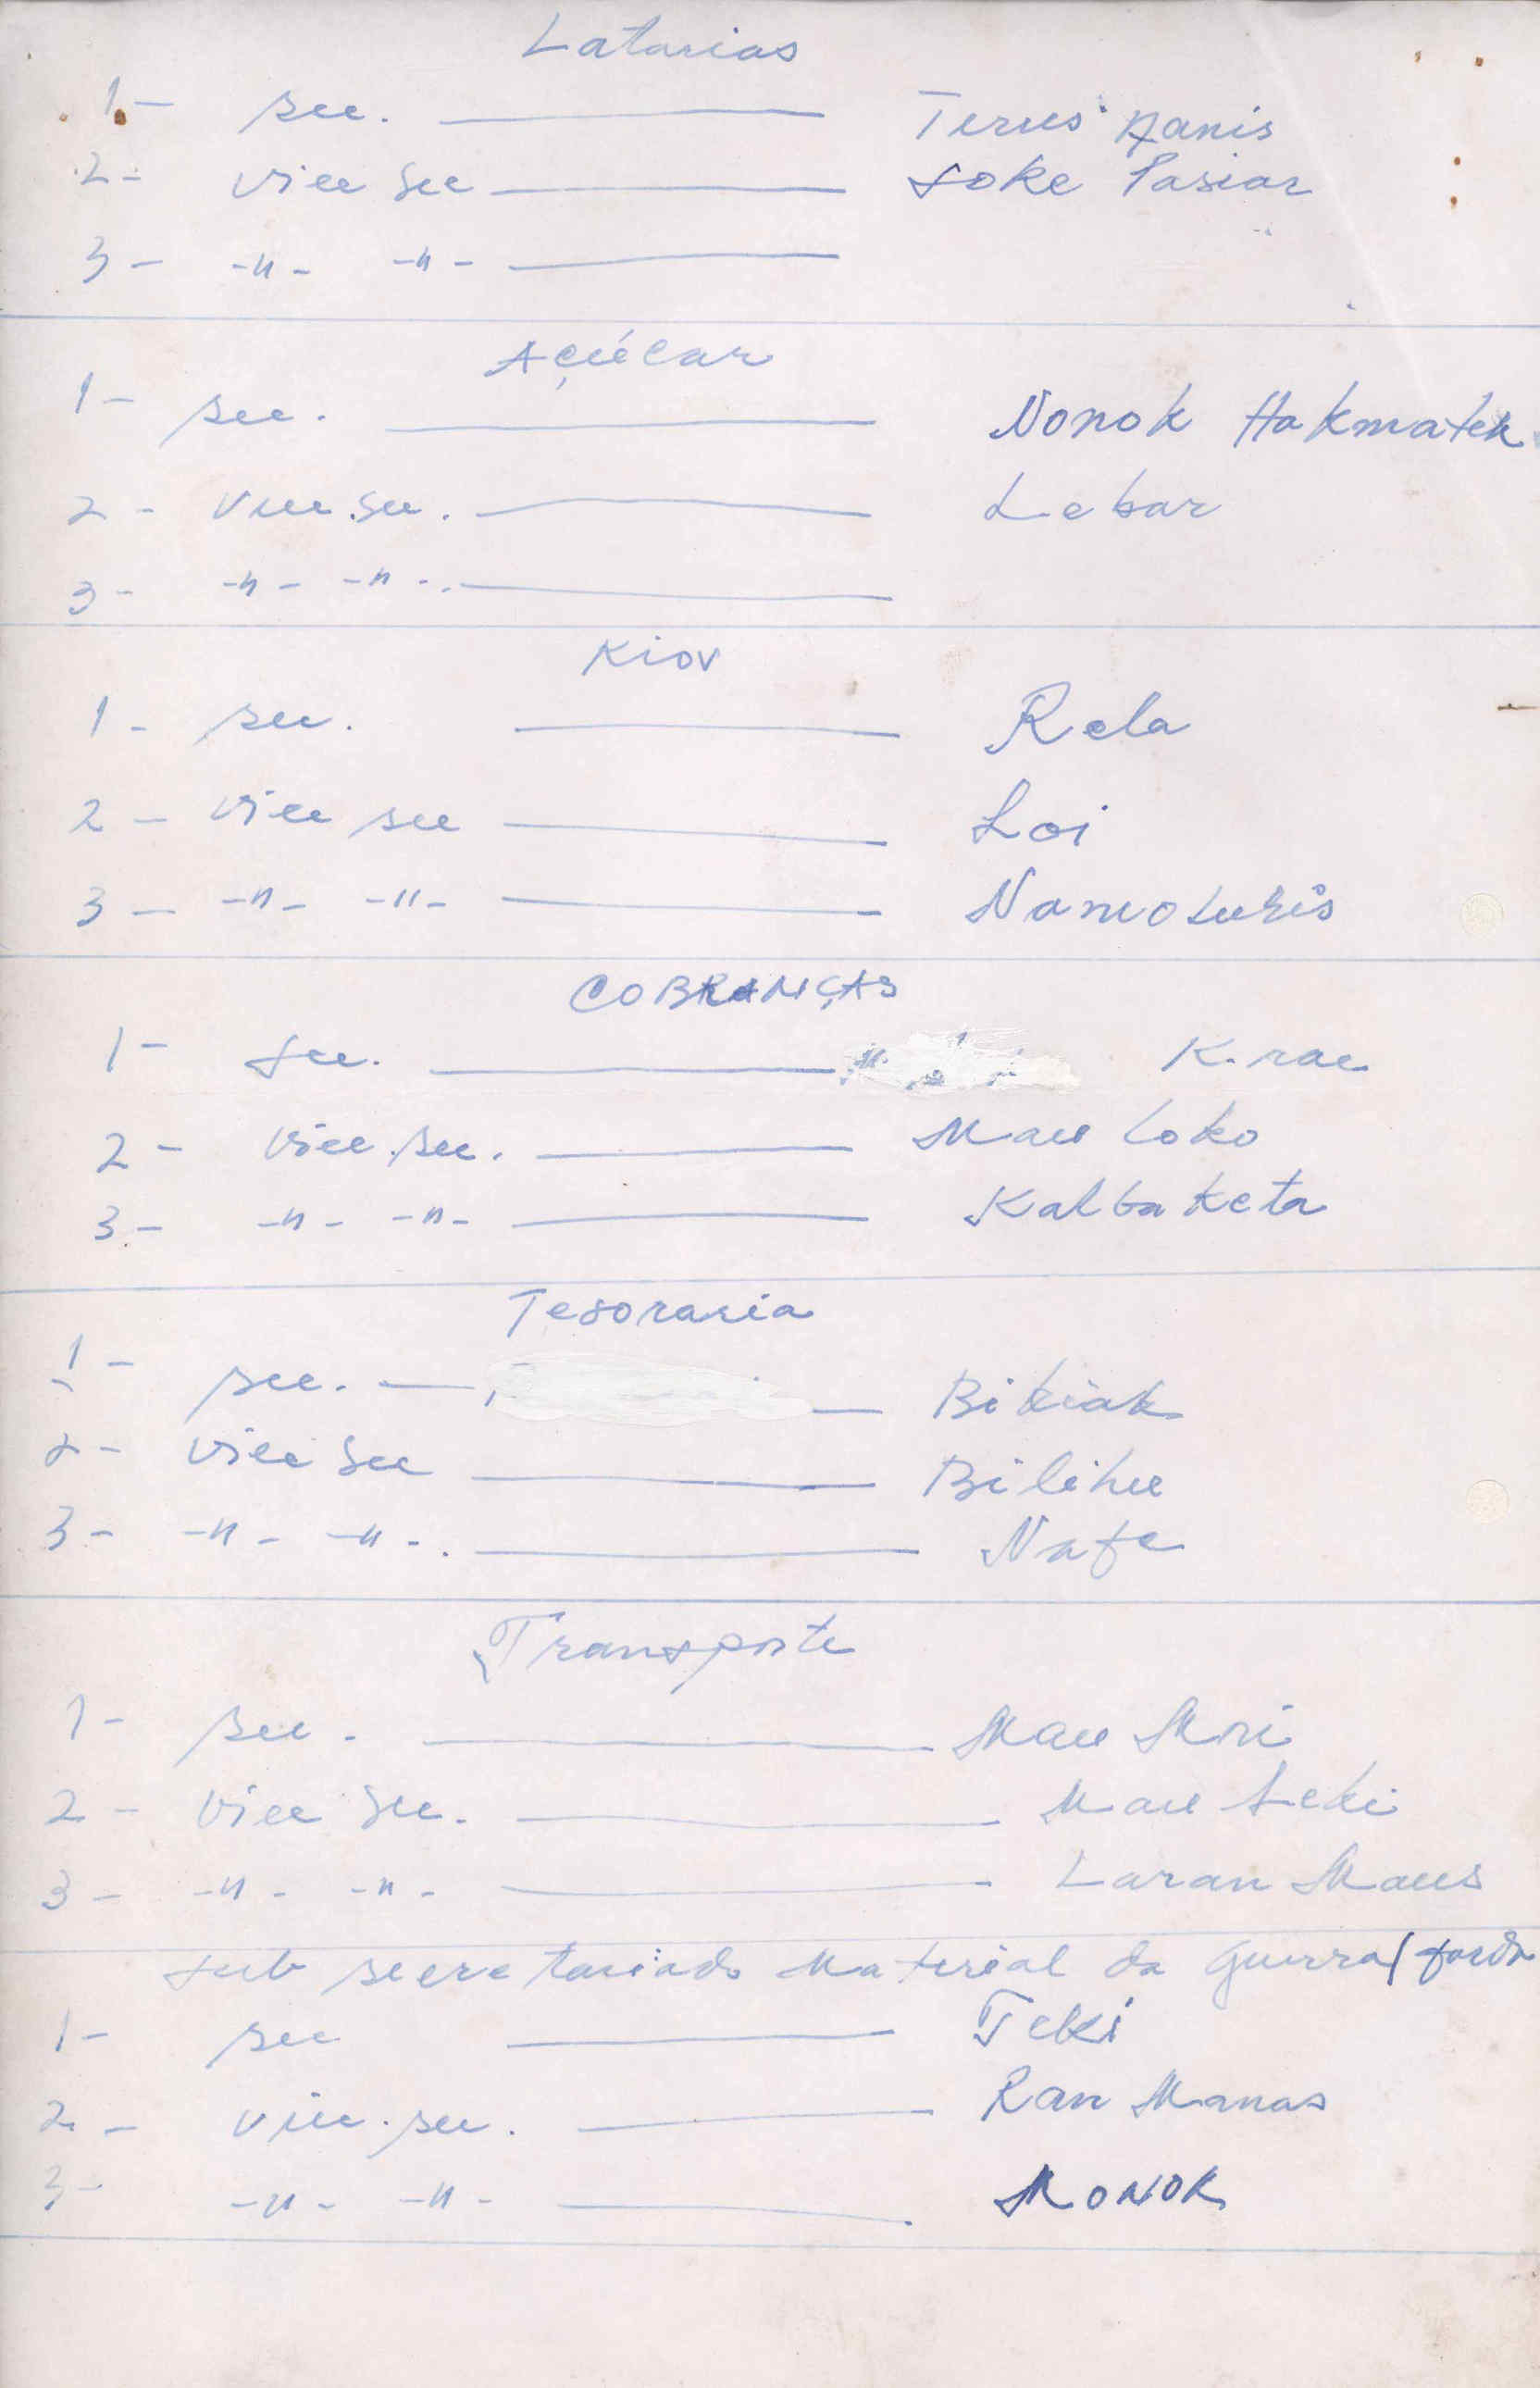 Latarias
1- sec. ——— Terus Nanis
2- vice sec ——— Loke Pasiar
3- -"- -"- ———
Açúcar
1- sec. ——— Nonok Hakmatek
2- vice sec. ——— Lebar
3- -"- -"- ———
Kiov
1- sec. ——— Rela
2- vice sec ——— Loi
3- -"- -"- ———
COBRANÇAS
1- sec. ——— K. rae
2- vice sec. ——— Mau Loko
3- -"- -"- ——— Kalbaketa
Tesoraria
1- sec. ——— Bikiak
2- vice sec ——— Bilihu
3- -"- -"- ——— Nafe
Transporte
1- sec. ——— Mau Mori
2- vice sec. ——— Mau Leki
3- -"- -"- ——— Laran Maus
Sub secretariado Material da Guerra/
1- sec ——— Teki
2- vice sec. ——— Ran Manas
3- -"- -"- ——— MONOK